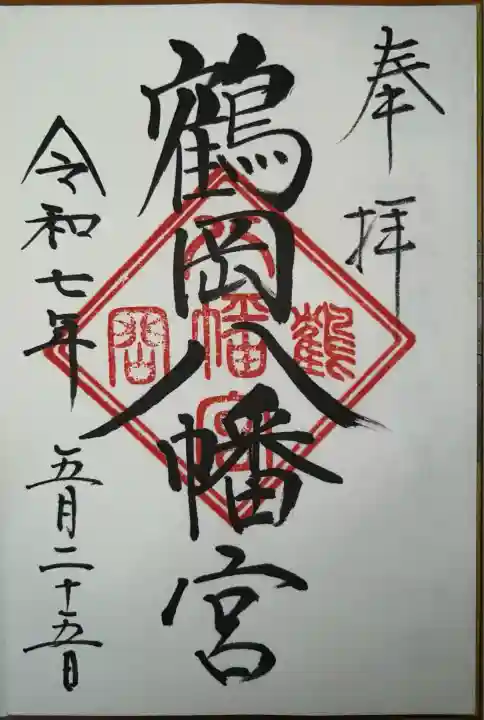 奉拝
鶴岡八幡宮
鶴岡
八幡宮
令和七年 五月二十五日